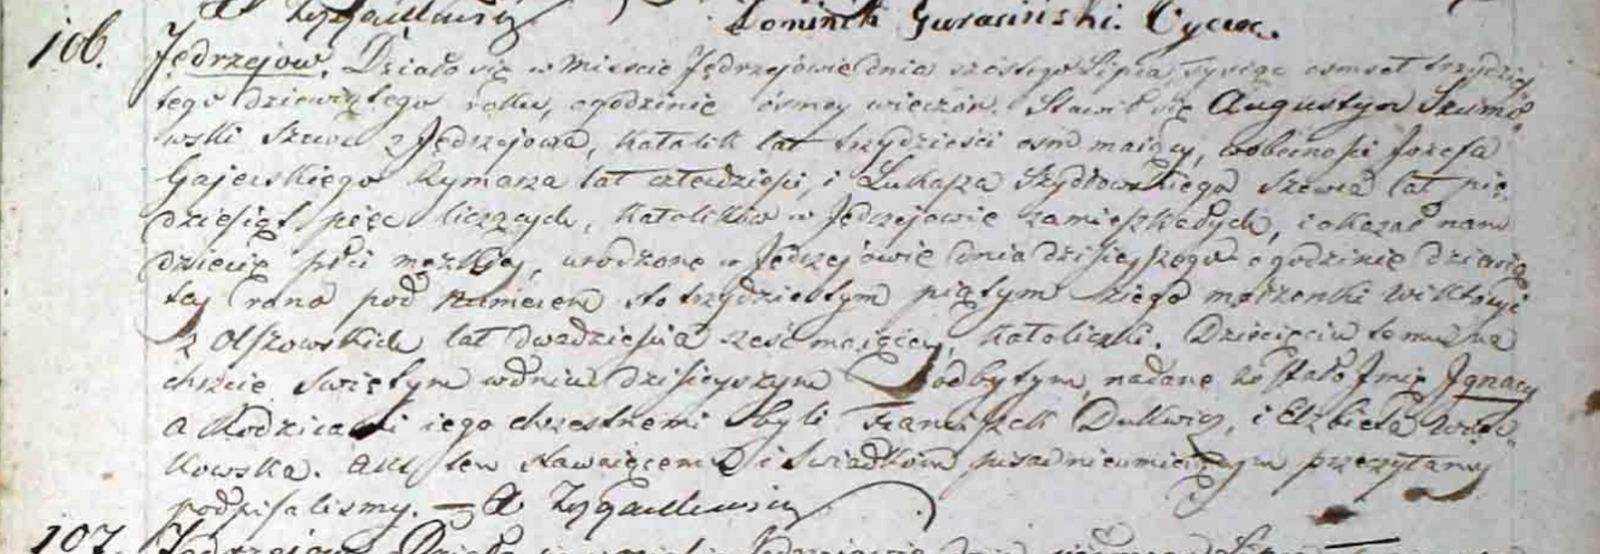 Dominik Guraciński. Oyciec.
106. Jędrzejow. Działo się w Mieście Jędrzejowie dnia szóstego Lipca, Tysiąc osmset trzydzies
tego dziewiątego roku, o godzinie ósmey wieczór. Stawił się Augustyn Szumo
wski Szewc z Jędrzejowa, Katolik lat trzydzieści osm maiący, w obecności Jozefa
Gajewskiego Rymarza lat czterdzieści, i Łukasza Szydłowskiego Szewca lat pię
dziesiąt pięc liczących, Katolików w Jędrzejowie zamieszkałych, i okazał nam
dziecię płci męzkiej, urodzone w Jędrzejówie dnia dzisieyszego o godzinie dziewią
tey rano pod numerem sto trzydziestym piątym z iego małżonki Wiktoryi
z Olszowskich lat dwadzieścia sześć maiącey, Katoliczki. Dziecięciu temu na
chrzcie Swiętym w dniu dzisieyszym odbytym, nadane zostało Imie Ignacy
a Rodzicami iego chrzestnemi byli Franciszek Dulkwicz, i Elzbieta
kowska. Akt ten stawaiącemu i Swiadkom pisać nieumieiącym przeczytany
podpisalismy. — X
107. Jędrzejow. Działo się w Mieście Jędrzejowie dnia Lipca